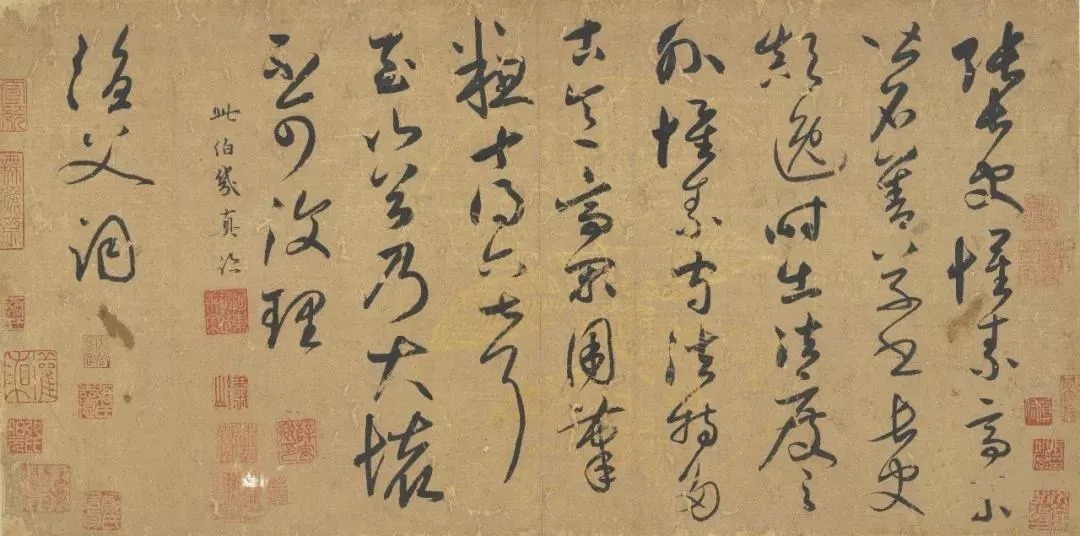 張長史懷素高閑
皆名善草書長史
顛逸時出法度之
外懷素守法特多
古意高閑用筆
粗十得六七耳
至山谷乃大壞
不可復理
此伯幾真跡
父